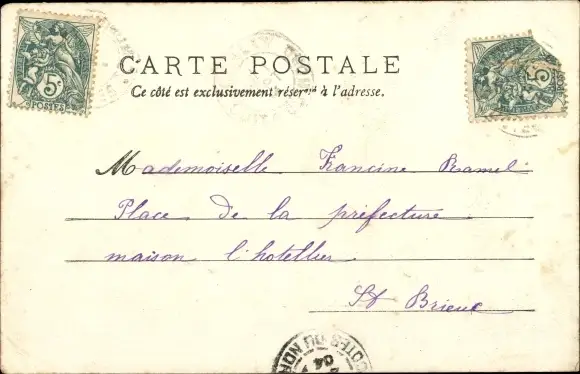 5c
POSTES
5c
CARTE POSTALE
Ce côté est exclusivement réservé à l'adresse.
Mademoiselle Francine Ramel
Place de la préfecture
maison l'hotellier
St Brieuc
COTES DU NOR
04